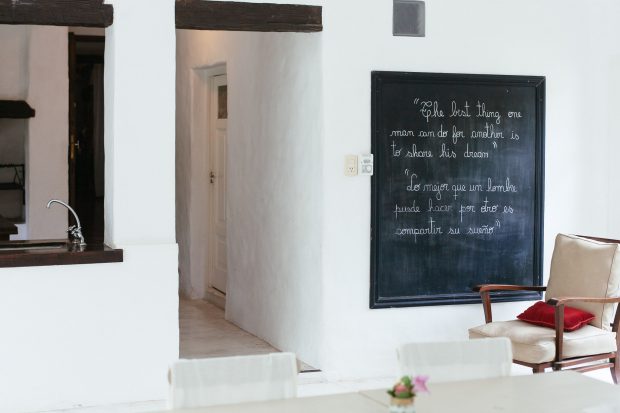 "The best thing one
man can do for another is
to share his dream"
"Lo mejor que un hombre
puede hacer por otro es
compartir su sueño"